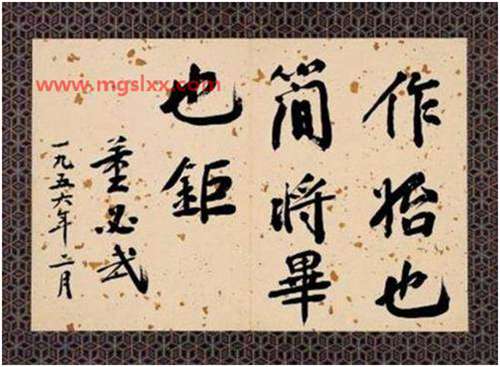 作始也
簡將畢
也鉅
董必武
一九五六年二月
www.mgslxx.com